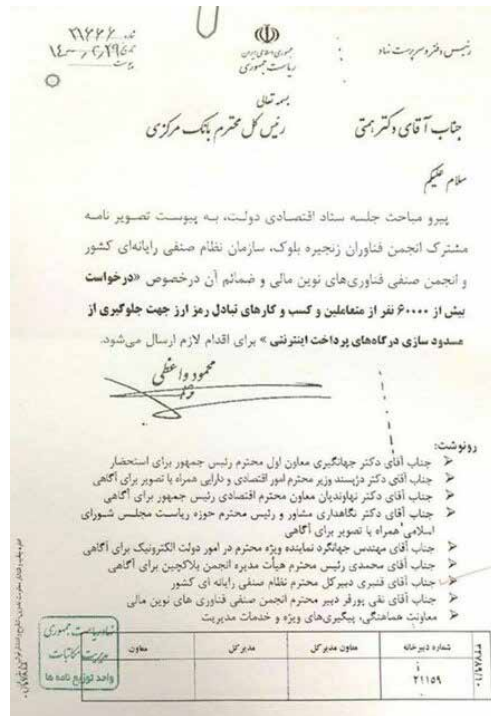 جمهوری اسلامی ایران
ریاست جمهوری
رئیس دفتر و سرپرست نهاد
بسمه تعالی
جناب آقای دکتر همتی
رئیس کل محترم بانک مرکزی
سلام علیکم
پیرو مباحث جلسه ستاد اقتصادی دولت، به پیوست تصویر نامه
مشترک انجمن فناوران زنجیره بلوک، سازمان نظام صنفی رایانه‌ای کشور
و انجمن صنفی فناوری‌های نوین مالی و ضمائم آن درخصوص «درخواست
بیش از ۶۰۰۰۰ نفر از متعاملین و کسب و کارهای تبادل رمز ارز جهت جلوگیری از
مسدود سازی درگاه‌های پرداخت اینترنتی» برای اقدام لازم ارسال می‌شود.
محمود واعظی
رونوشت:
جناب آقای دکتر جهانگیری معاون اول محترم رئیس جمهور برای استحضار
جناب آقای دکتر دژپسند وزیر محترم امور اقتصادی و دارایی همراه با تصویر برای آگاهی
جناب آقای دکتر نهاوندیان معاون محترم اقتصادی رئیس جمهور برای آگاهی
جناب آقای دکتر نگاهداری مشاور و رئیس محترم حوزه ریاست مجلس شورای
اسلامی همراه با تصویر برای آگاهی
جناب آقای مهندس جهانگرد نماینده ویژه محترم در امور دولت الکترونیک برای آگاهی
جناب آقای محمدی رئیس محترم هیأت مدیره انجمن بلاکچین برای آگاهی
جناب آقای قنبری دبیرکل محترم نظام صنفی رایانه ای کشور
جناب آقای نقی پورفر دبیر محترم انجمن صنفی فناوری های نوین مالی
معاونت هماهنگی، پیگیری‌های ویژه و خدمات مدیریت
شماره دبیرخانه
معاون مدیر کل
مدیر کل
معاون
۲۱۱۵۹
نهاد ریاست جمهوری
مدیریت مکاتبات
واحد توزیع نامه ها